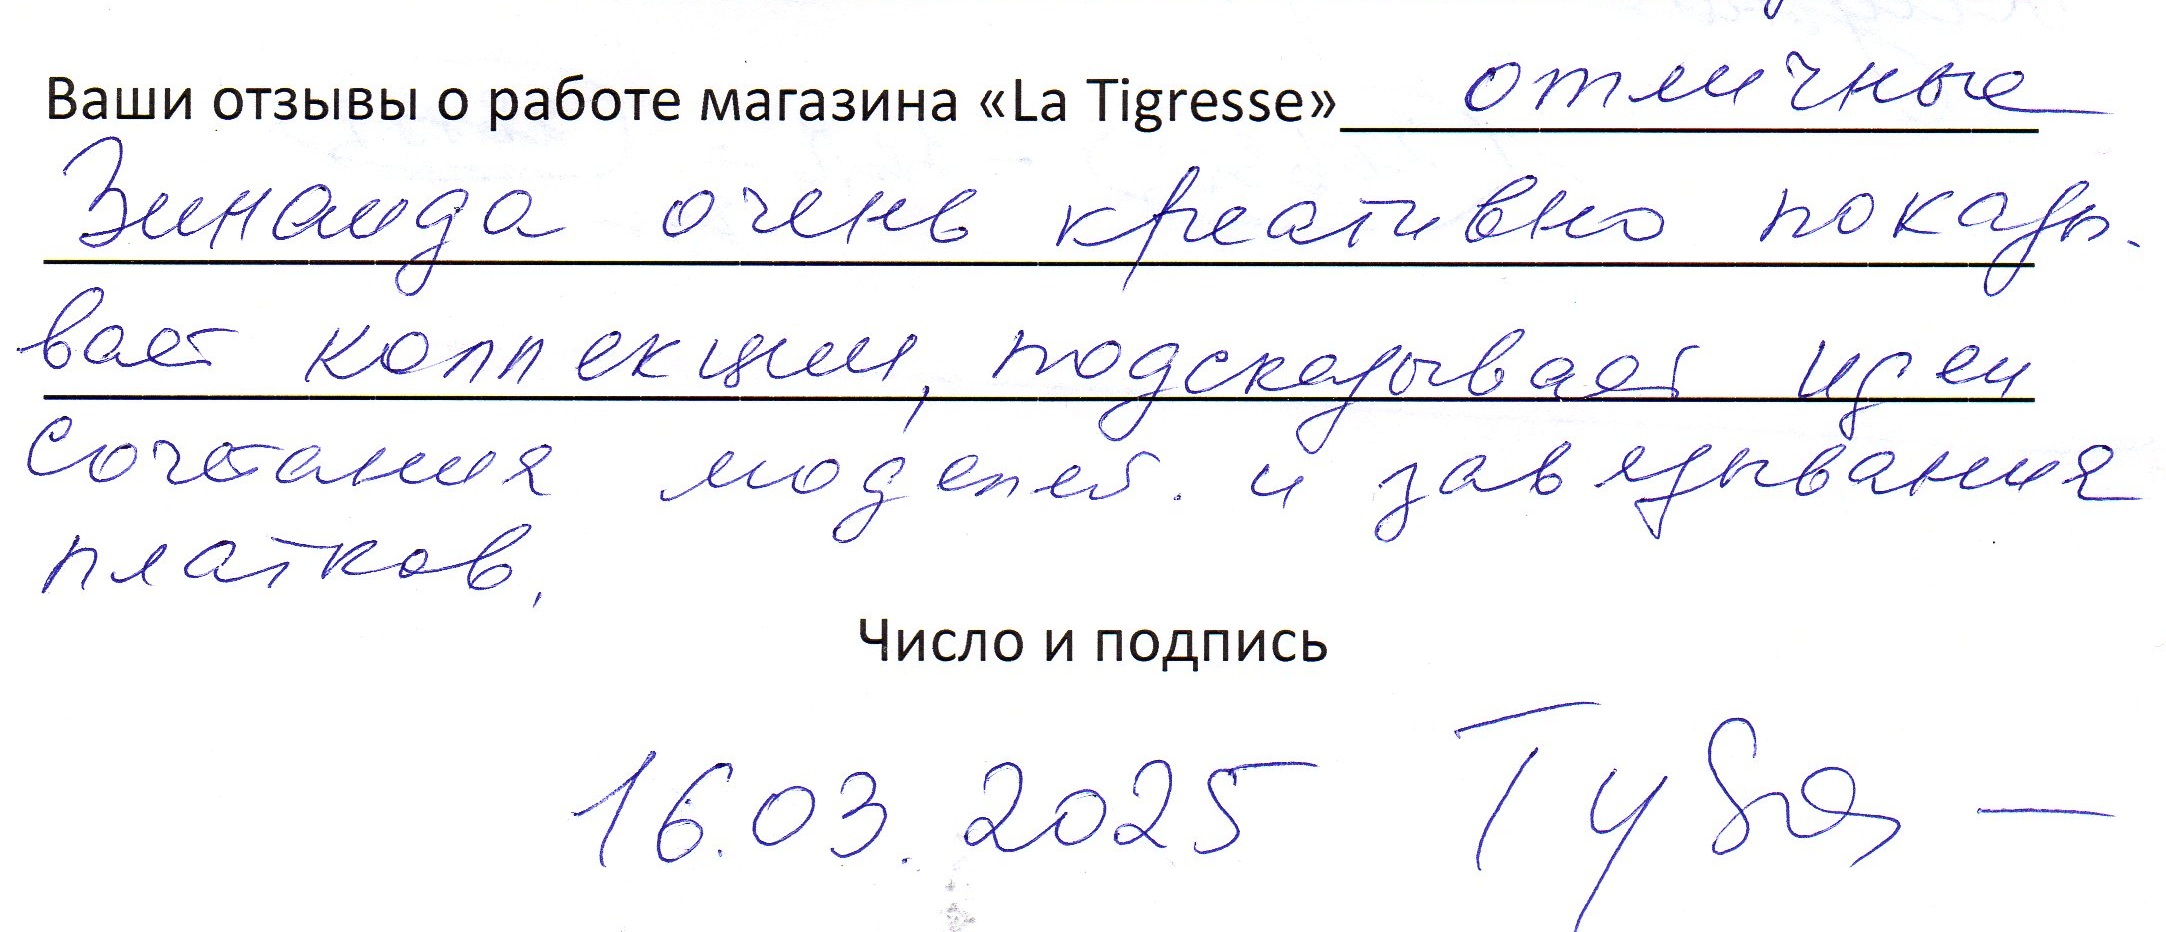 Ваши отзывы о работе магазина «La Tigresse» отличные
Зинаида очень креативно показы-
вает коллекции, подсказывает идеи
сочетания моделей. и завязывания
платков.
Число и подпись
16.03.2025